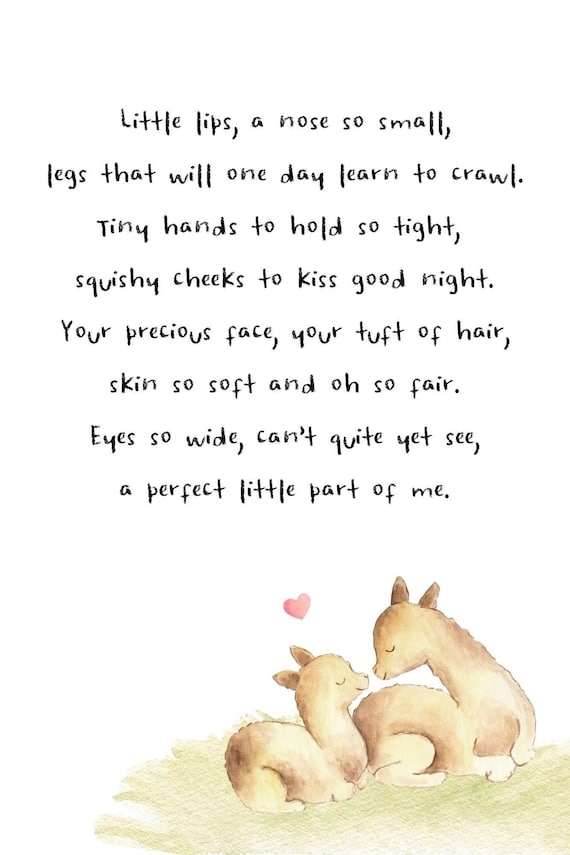 Little lips, a nose so small,
legs that will one day learn to crawl.
Tiny hands to hold so tight,
squishy cheeks to kiss good night.
Your precious face, your tuft of hair,
skin so soft and oh so fair.
Eyes so wide, can't quite yet see,
a perfect little part of me.